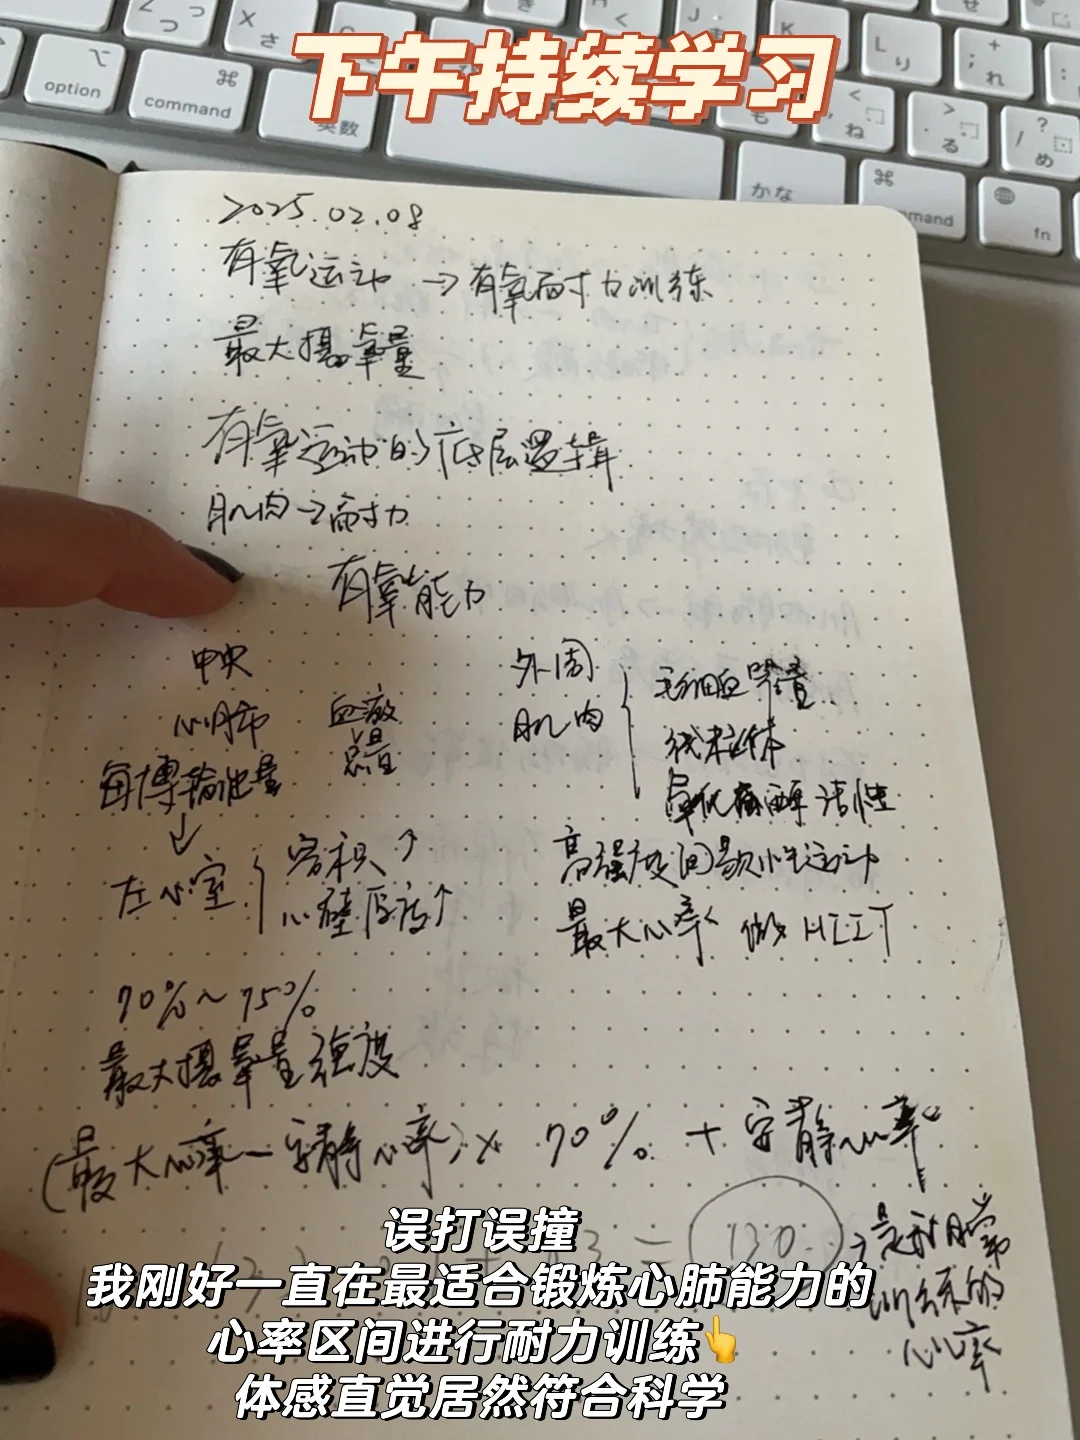 下午持续学习
option
command
英数
かな
command
fn
2025.02.08
有氧运动 → 有氧耐力训练
最大摄氧量
有氧运动的底层逻辑
肌肉→耐力
有氧能力
中央
心肺 血液
总量
每博输出量
↓
左心室 { 容积↑
心壁厚度↑
外周
肌肉 { 毛细血管量
线粒体
氧化酶活性
高强度间歇性运动
最大心率 做HIIT
70%~75%
最大摄氧量强度
(最大心率-安静心率)×70%+安静心率
= 130 → 是我日常
训练的
心率
误打误撞
我刚好一直在最适合锻炼心肺能力的
心率区间进行耐力训练👆
体感直觉居然符合科学